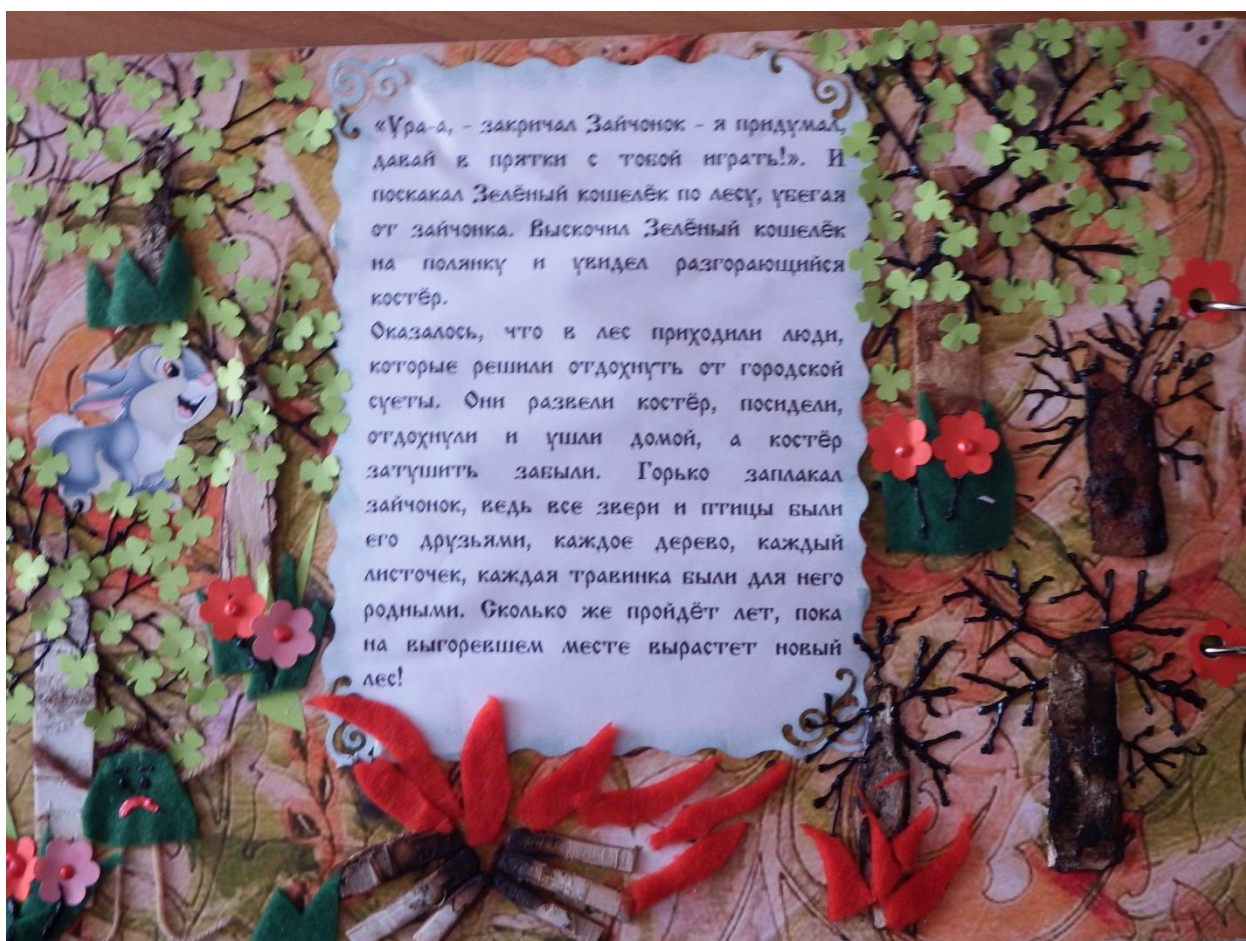 «Ура-а, - закричал Зайчонок - я придумал,
давай в прятки с тобой играть!». И
поскакал Зелёный кошелёк по лесу, убегая
от зайчонка. Выскочил Зелёный кошелёк
на полянку и увидел разгорающийся
костёр.
Оказалось, что в лес приходили люди,
которые решили отдохнуть от городской
суеты. Они развели костёр, посидели,
отдохнули и ушли домой, а костёр
затушить забыли. Горько заплакал
зайчонок, ведь все звери и птицы были
его друзьями, каждое дерево, каждый
листочек, каждая травинка были для него
родными. Сколько же пройдёт лет, пока
на выгоревшем месте вырастет новый
лес!